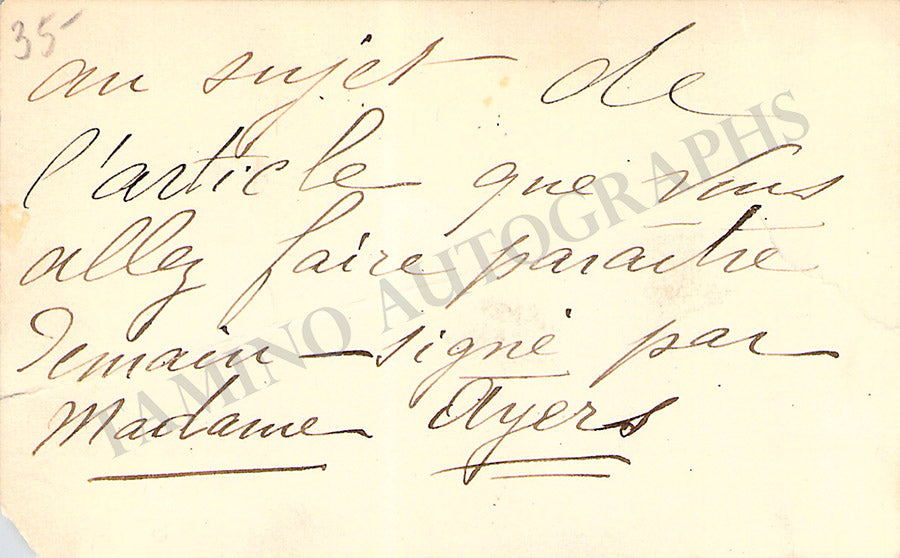 35
au sujet de
l'article que vous
allez faire paraître
Demain – signé par
Madame Ayers
TAMINO AUTOGRAPHS